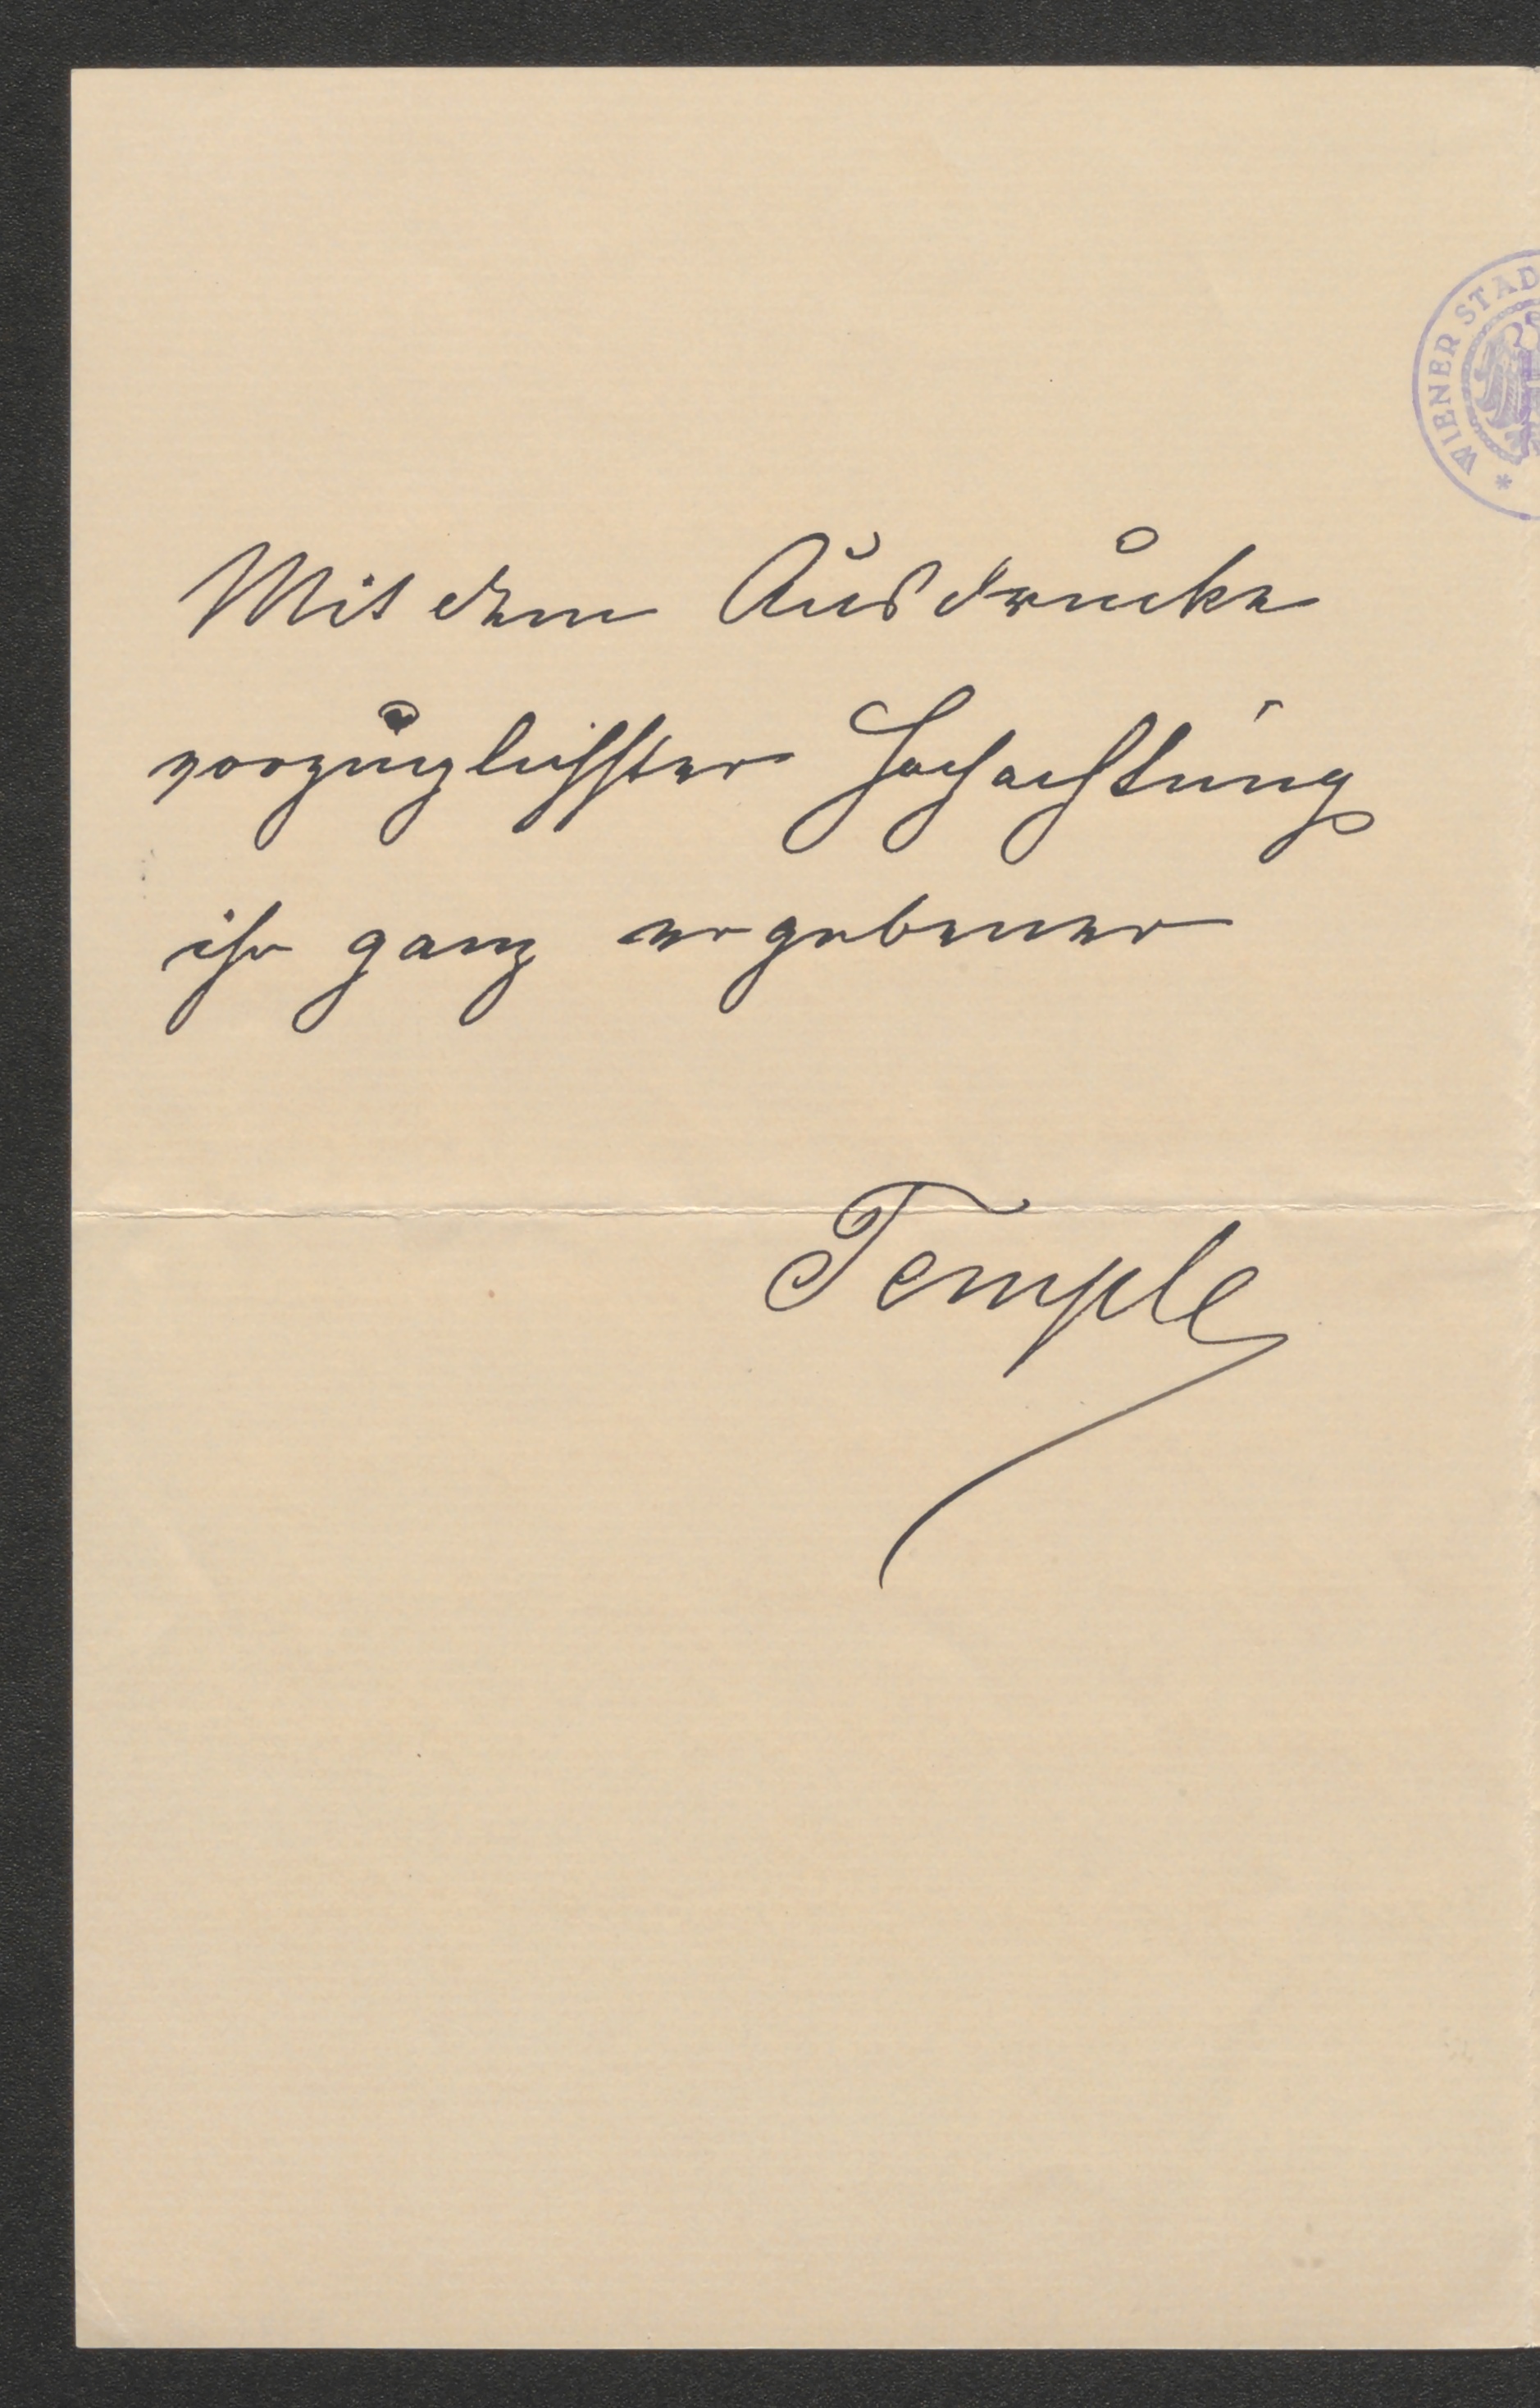 WIENER STAD
Mit dem Ausdrucke
vorzüglichster Hochachtung
ihr ganz ergebener
Temple